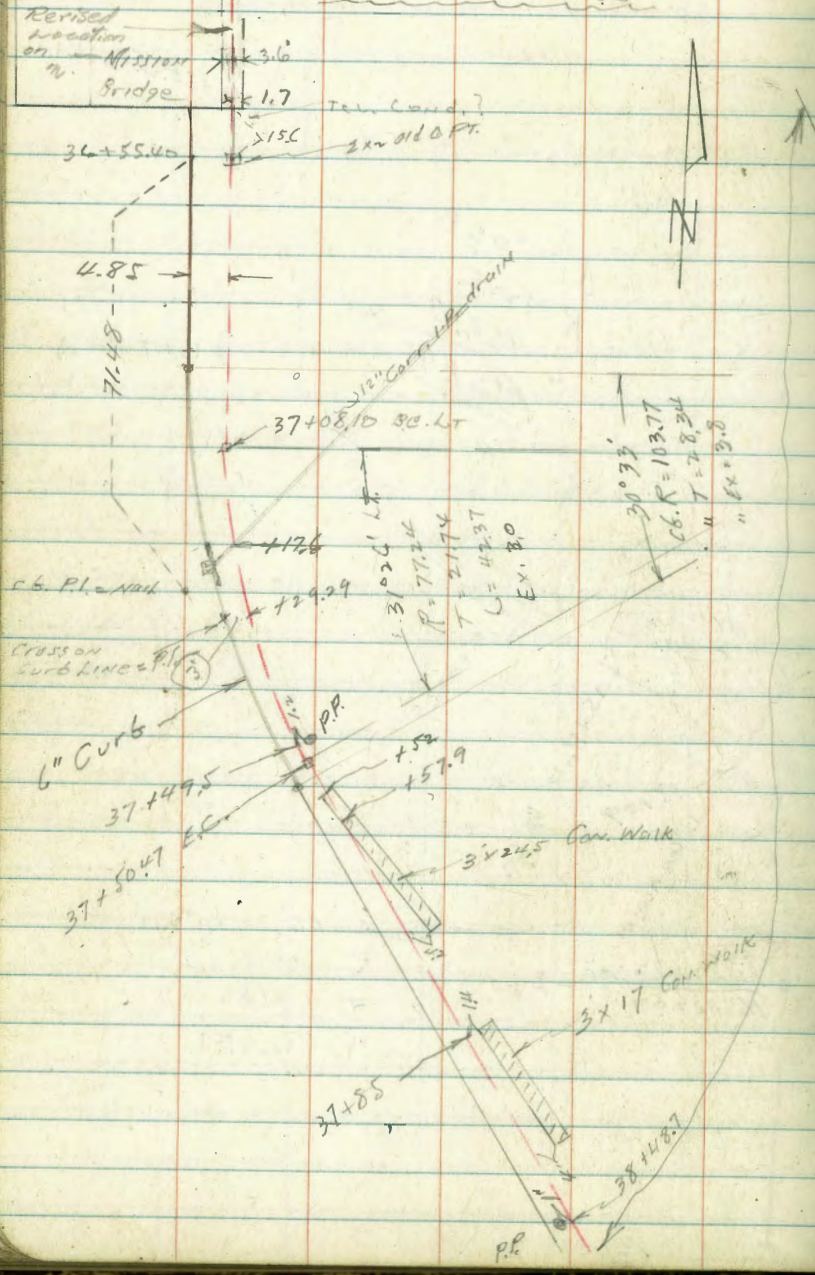 Revised
Location
on
Mission
Bridge
3.6'
1.7
Tel. Cond.?
>15.6
2x2 Old Δ PT.
36+55.40
4.85
71.48
N
12" Corr. I.P. drain
37+08.10 BC. LT
+17.6
+29.29
cb. P.I. = Nail
Cross on
Curb Line = P.I.
3'
31°26' LT.
R = 77.24
T = 21.74
L = 42.37
Ex. 3.0
30°33'
cb. R = 103.77
" T = 28.34
" Ex = 3.8
6" Curb
1.2
P.P.
37+49.5
37+50.47 E.C.
+52
+57.9
3'x24.5 Con. Walk
1.5'
1.4
3'x17 Con. Walk
37+85
38+48.7
P.P.